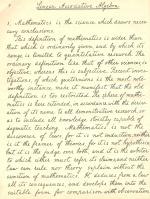 Linear Associative Algebra
1. Mathematics is the science which draws neces-
sary conclusions.
This definition of mathematics is wider than
that which is ordinarily given, and by which its
range is limited to quantitative research. The
ordinary definition, like that of other sciences, is
objective; whereas this is subjective. Recent inves-
tigations, of which quaternions is the most note-
worthy instance, make it manifest that the old
definition is too restricted. The sphere of mathe-
matics is here extended, in accordance with the deriva-
tion of its name, to all demonstrative research, so
as to include all knowledge strictly capable of
dogmatic teaching. Mathematics is not the
discoverer of laws, for it is not induction; neither
is it the framer of theories, for it is not hypothesis;
but it is the judge over both, and it is the arbiter
to which each must refer its claims; and neither
law can rule nor theory explain without the
sanction of mathematics. It deduces from a law
all its consequences, and develops them into the
suitable form for comparison with observation